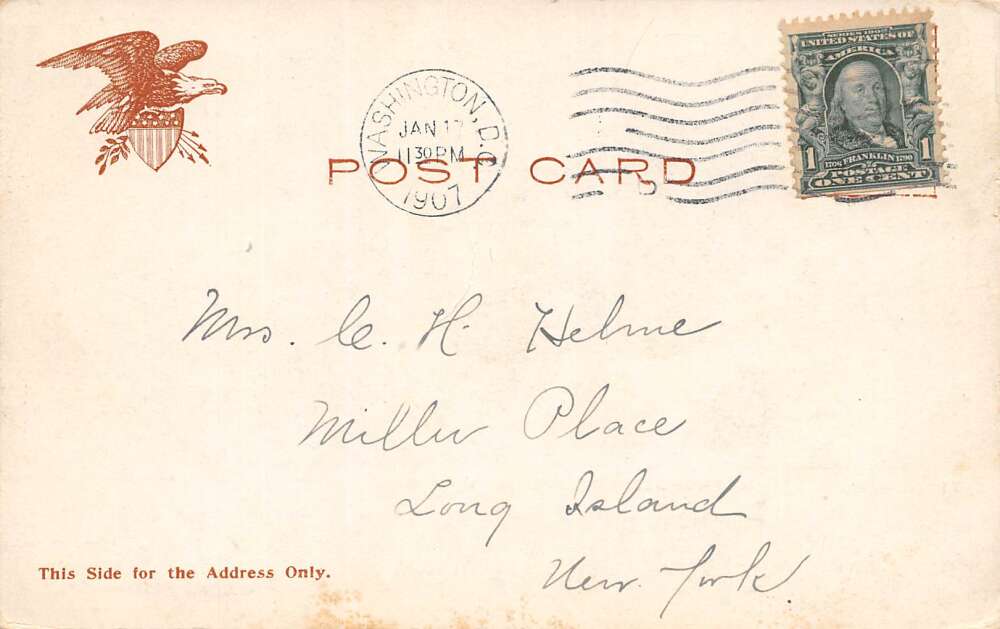 WASHINGTON, D.C.
JAN 17
11 30 PM
1907
SERIES 1902
UNITED STATES OF
AMERICA
1 1706 FRANKLIN 1790 1
POSTAGE
ONE CENT
POST CARD
D
Mrs. C. H. Helme
Miller Place
Long Island
New York.
This Side for the Address Only.